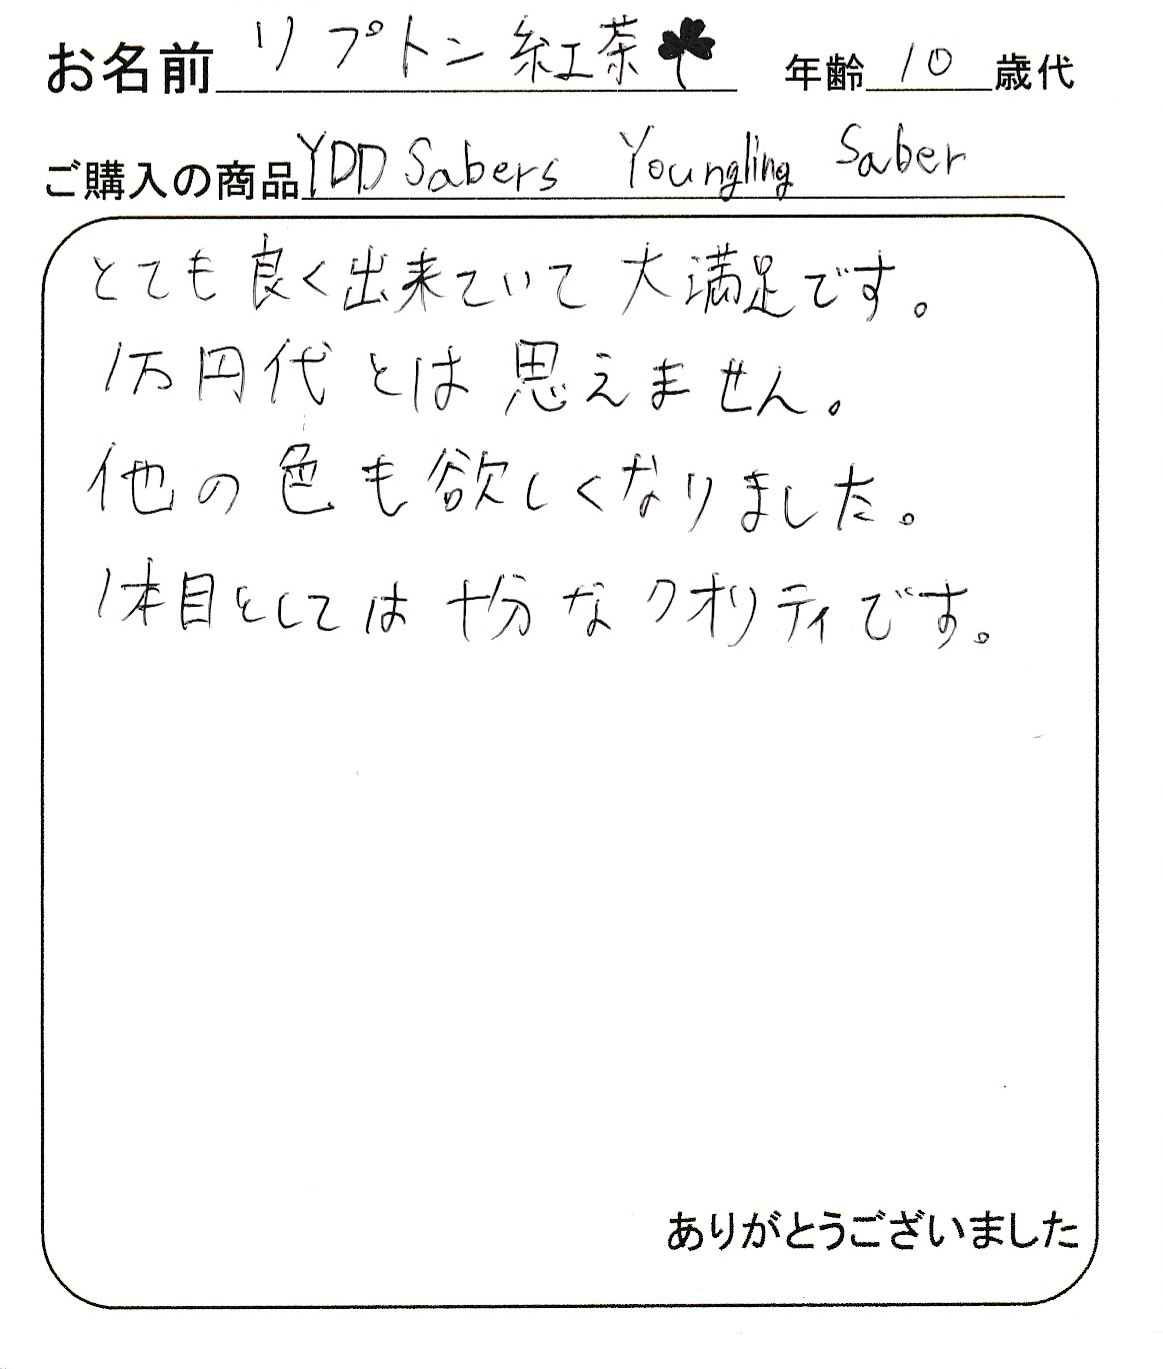 お名前 リプトン紅茶 年齢 10 歳代
ご購入の商品 YDD Sabers Youngling Saber
とても良く出来ていて大満足です。
1万円代とは思えません。
他の色も欲しくなりました。
1本目としては十分なクオリティです。
ありがとうございました